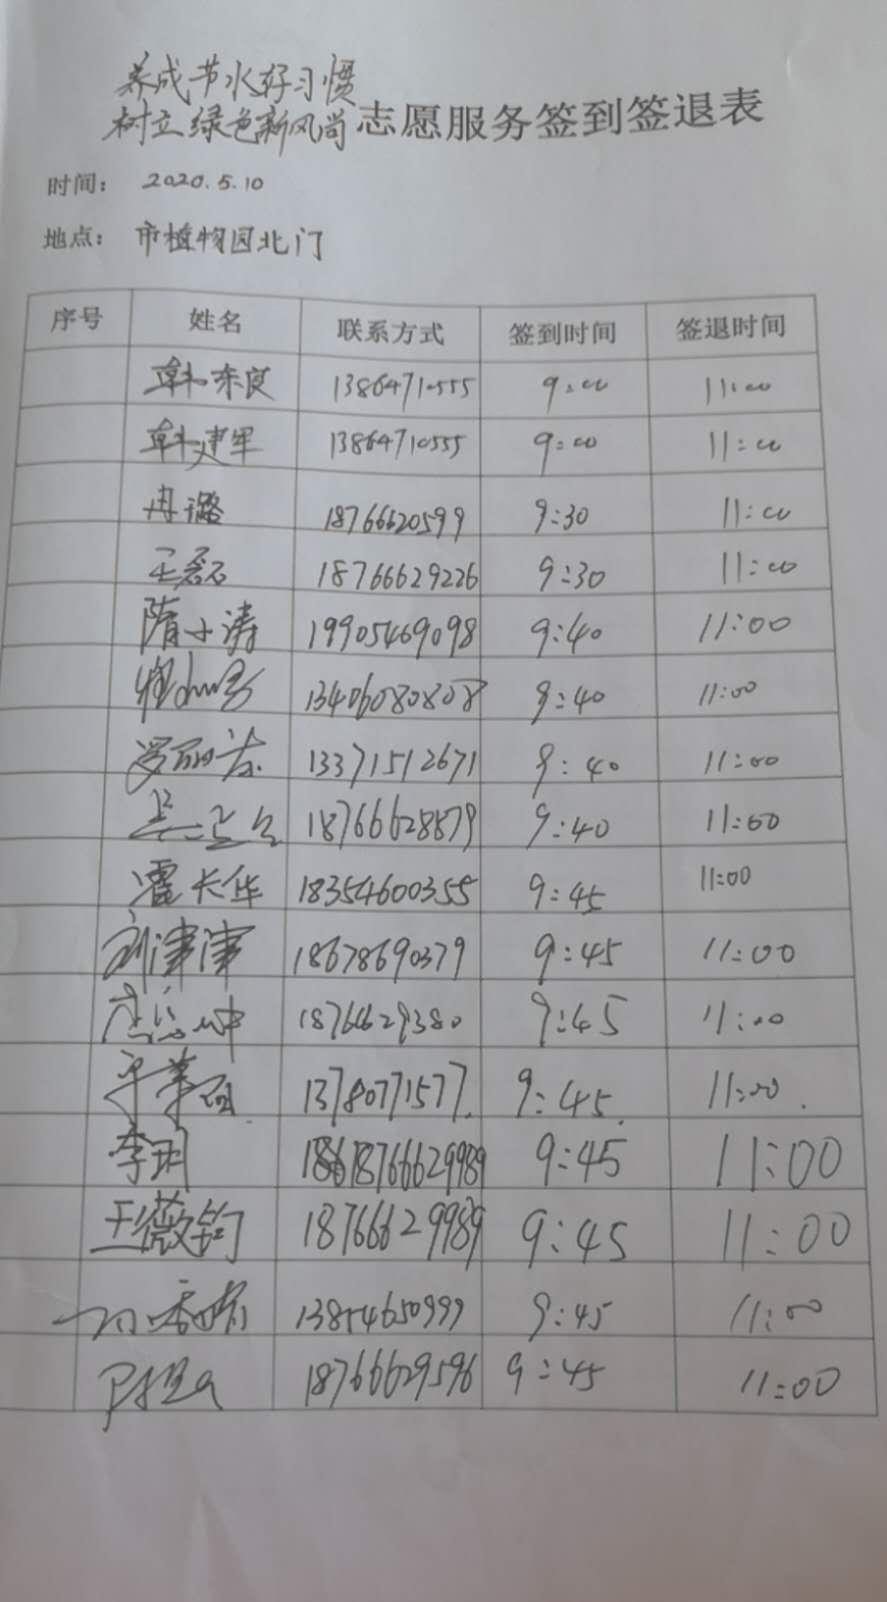 养成节水好习惯
树立绿色新风尚 志愿服务签到签退表
时间： 2020.5.10
地点： 市植物园北门
序号 姓名 联系方式 签到时间 签退时间
韩东良 13864710555 9:00 11:00
韩建军 13864710555 9:00 11:00
冉璐 18766620599 9:30 11:00
王磊 18766629226 9:30 11:00
隋小涛 19905469098 9:40 11:00
13406080808 9:40 11:00
13371512671 9:40 11:00
18766628879 9:40 11:00
霍长华 18354600355 9:45 11:00
刘津津 18678690379 9:45 11:00
18766629380 9:45 11:00
13780771577. 9:45. 11:00.
李玥 18766629989 9:45 11:00
王薇钧 18766629989 9:45 11:00
13854650999 9:45 11:00
18766629596 9:45 11:00